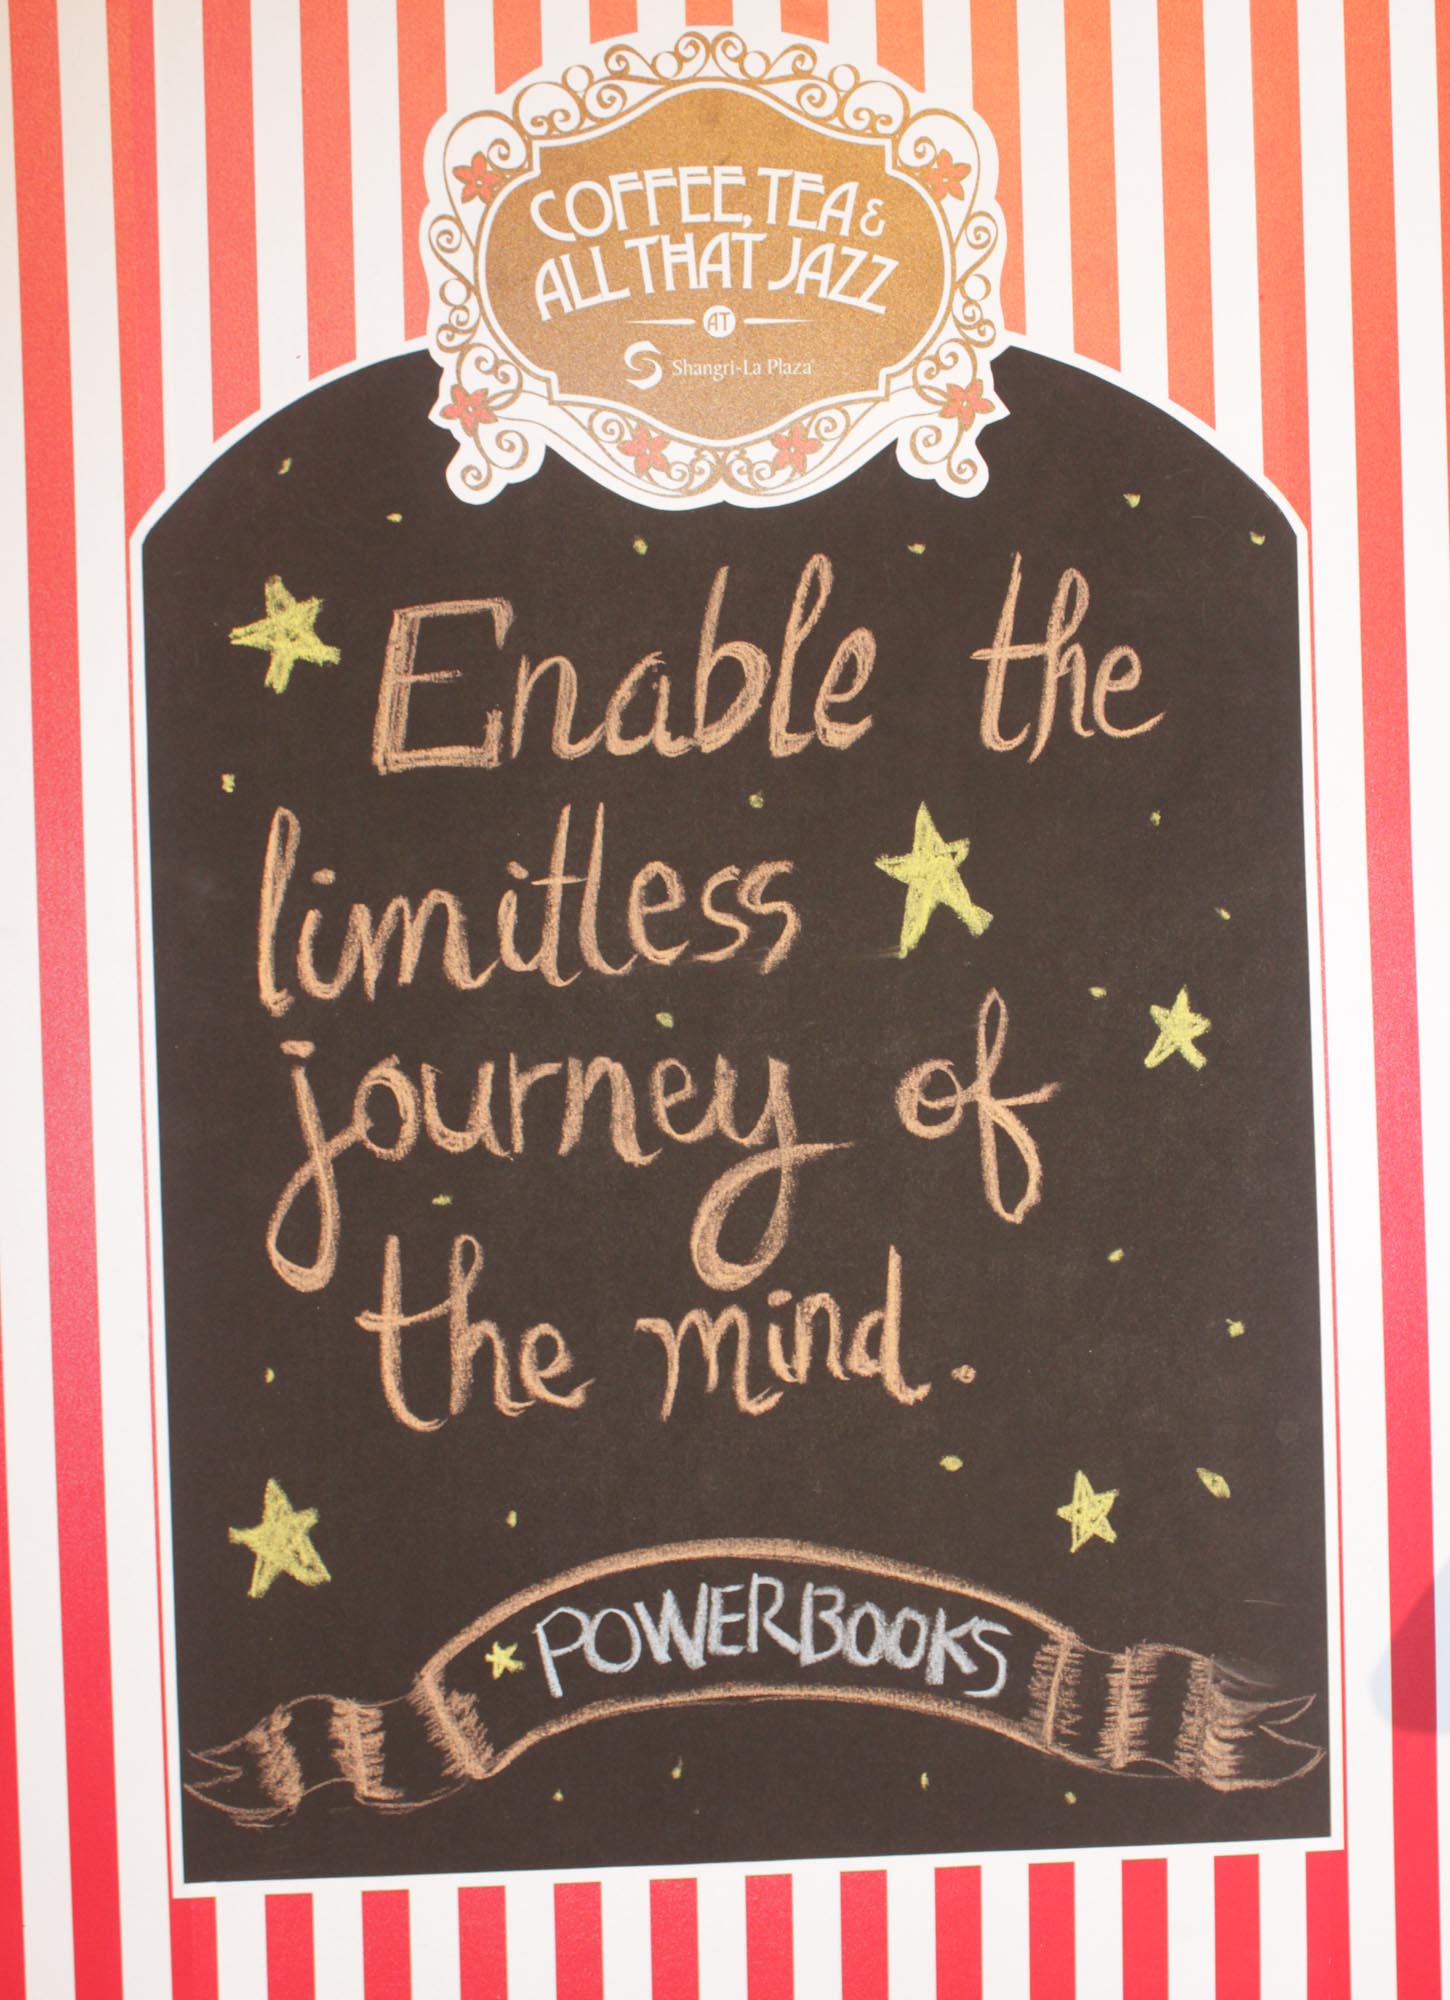 COFFEE, TEA &
ALL THAT JAZZ
AT
Shangri-La Plaza®
Enable the
limitless
journey of
the mind.
POWERBOOKS